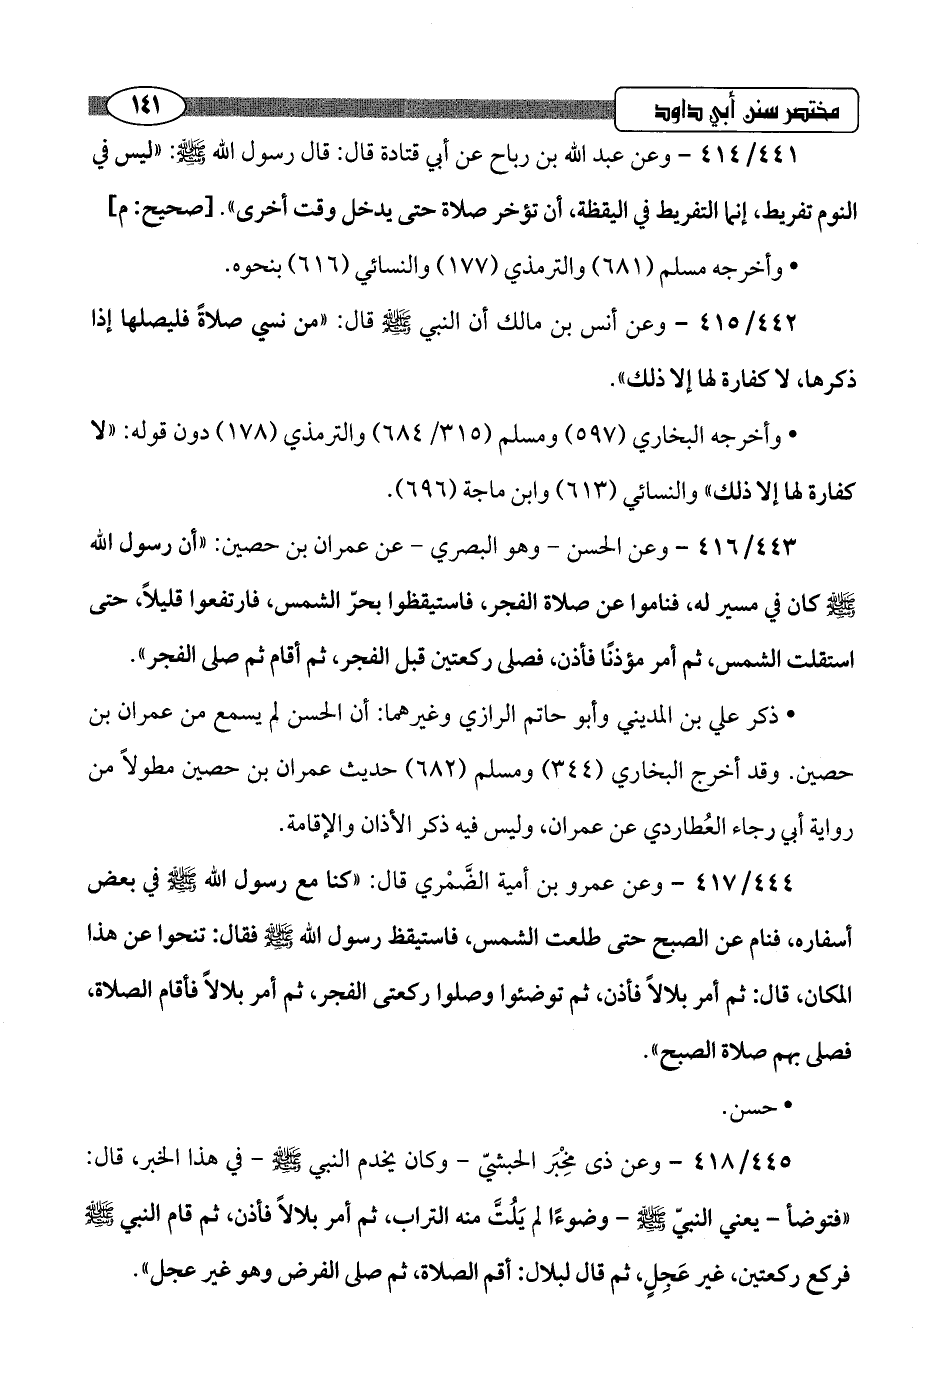 مختصر سنن أبي داود
١٤١
٤١٤/٤٤١ - وعن عبد الله بن رباح عن أبي قتادة قال: قال رسول الله ﷺ: «ليس في
النوم تفريط، إنما التفريط في اليقظة، أن تؤخر صلاة حتى يدخل وقت أخرى». [صحيح: م]
• وأخرجه مسلم (٦٨١) والترمذي (١٧٧) والنسائي (٦١٦) بنحوه.
٤١٥/٤٤٢ - وعن أنس بن مالك أن النبي ﷺ قال: «من نسي صلاةً فليصلها إذا
ذكرها، لا كفارة لها إلا ذلك».
• وأخرجه البخاري (٥٩٧) ومسلم (٣١٥/ ٦٨٤) والترمذي (١٧٨) دون قوله: «لا
كفارة لها إلا ذلك» والنسائي (٦١٣) وابن ماجة (٦٩٦).
٤١٦/٤٤٣ - وعن الحسن - وهو البصري - عن عمران بن حصين: «أن رسول الله
ﷺ كان في مسير له، فناموا عن صلاة الفجر، فاستيقظوا بحرّ الشمس، فارتفعوا قليلاً، حتى
استقلت الشمس، ثم أمر مؤذنًا فأذن، فصلى ركعتين قبل الفجر، ثم أقام ثم صلى الفجر».
• ذكر علي بن المديني وأبو حاتم الرازي وغيرهما: أن الحسن لم يسمع من عمران بن
حصين. وقد أخرج البخاري (٣٤٤) ومسلم (٦٨٢) حديث عمران بن حصين مطولاً من
رواية أبي رجاء العُطاردي عن عمران، وليس فيه ذكر الأذان والإقامة.
٤١٧/٤٤٤ - وعن عمرو بن أمية الضَّمْري قال: «كنا مع رسول الله ﷺ في بعض
أسفاره، فنام عن الصبح حتى طلعت الشمس، فاستيقظ رسول الله ﷺ فقال: تنحوا عن هذا
المكان، قال: ثم أمر بلالاً فأذن، ثم توضئوا وصلوا ركعتى الفجر، ثم أمر بلالاً فأقام الصلاة،
فصلى بهم صلاة الصبح».
• حسن.
٤١٨/٤٤٥ - وعن ذى مِخْبَر الحبشيّ - وكان يخدم النبي ﷺ - في هذا الخبر، قال:
«فتوضأ - يعني النبيّ ﷺ - وضوءًا لم يَلُتَّ منه التراب، ثم أمر بلالاً فأذن، ثم قام النبي ﷺ
فركع ركعتين، غير عَجِلٍ، ثم قال لبلال: أقم الصلاة، ثم صلى الفرض وهو غير عجل».